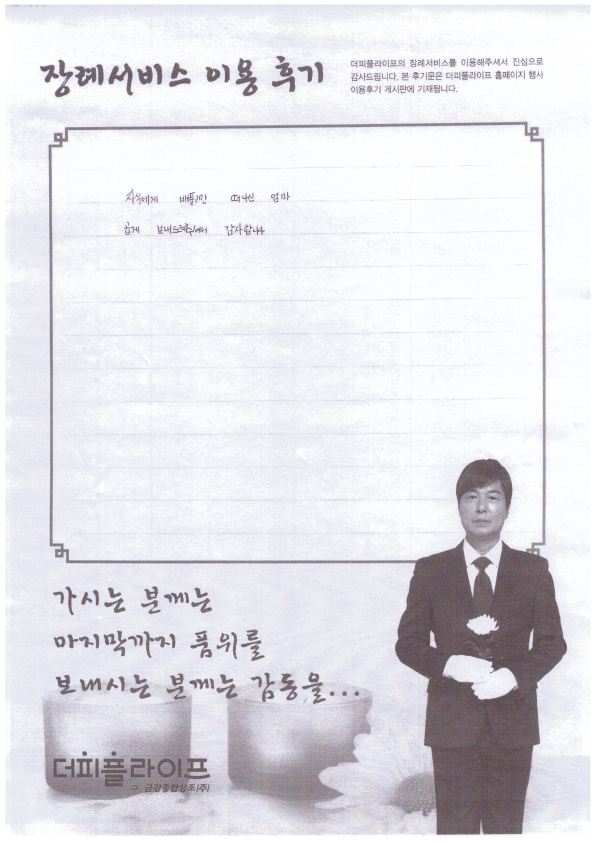 장례서비스 이용 후기
더피플라이프의 장례서비스를 이용해주셔서 진심으로
감사드립니다. 본 후기문은 더피플라이프 홈페이지 행사
이용후기 게시판에 기재됩니다.
자식에게 베풀고만 떠나신 엄마
곱게 보내드려주셔서 감사합니다
가시는 분께는
마지막까지 품위를
보내시는 분께는 감동을...
더피플라이프
구. 금강종합상조(주)